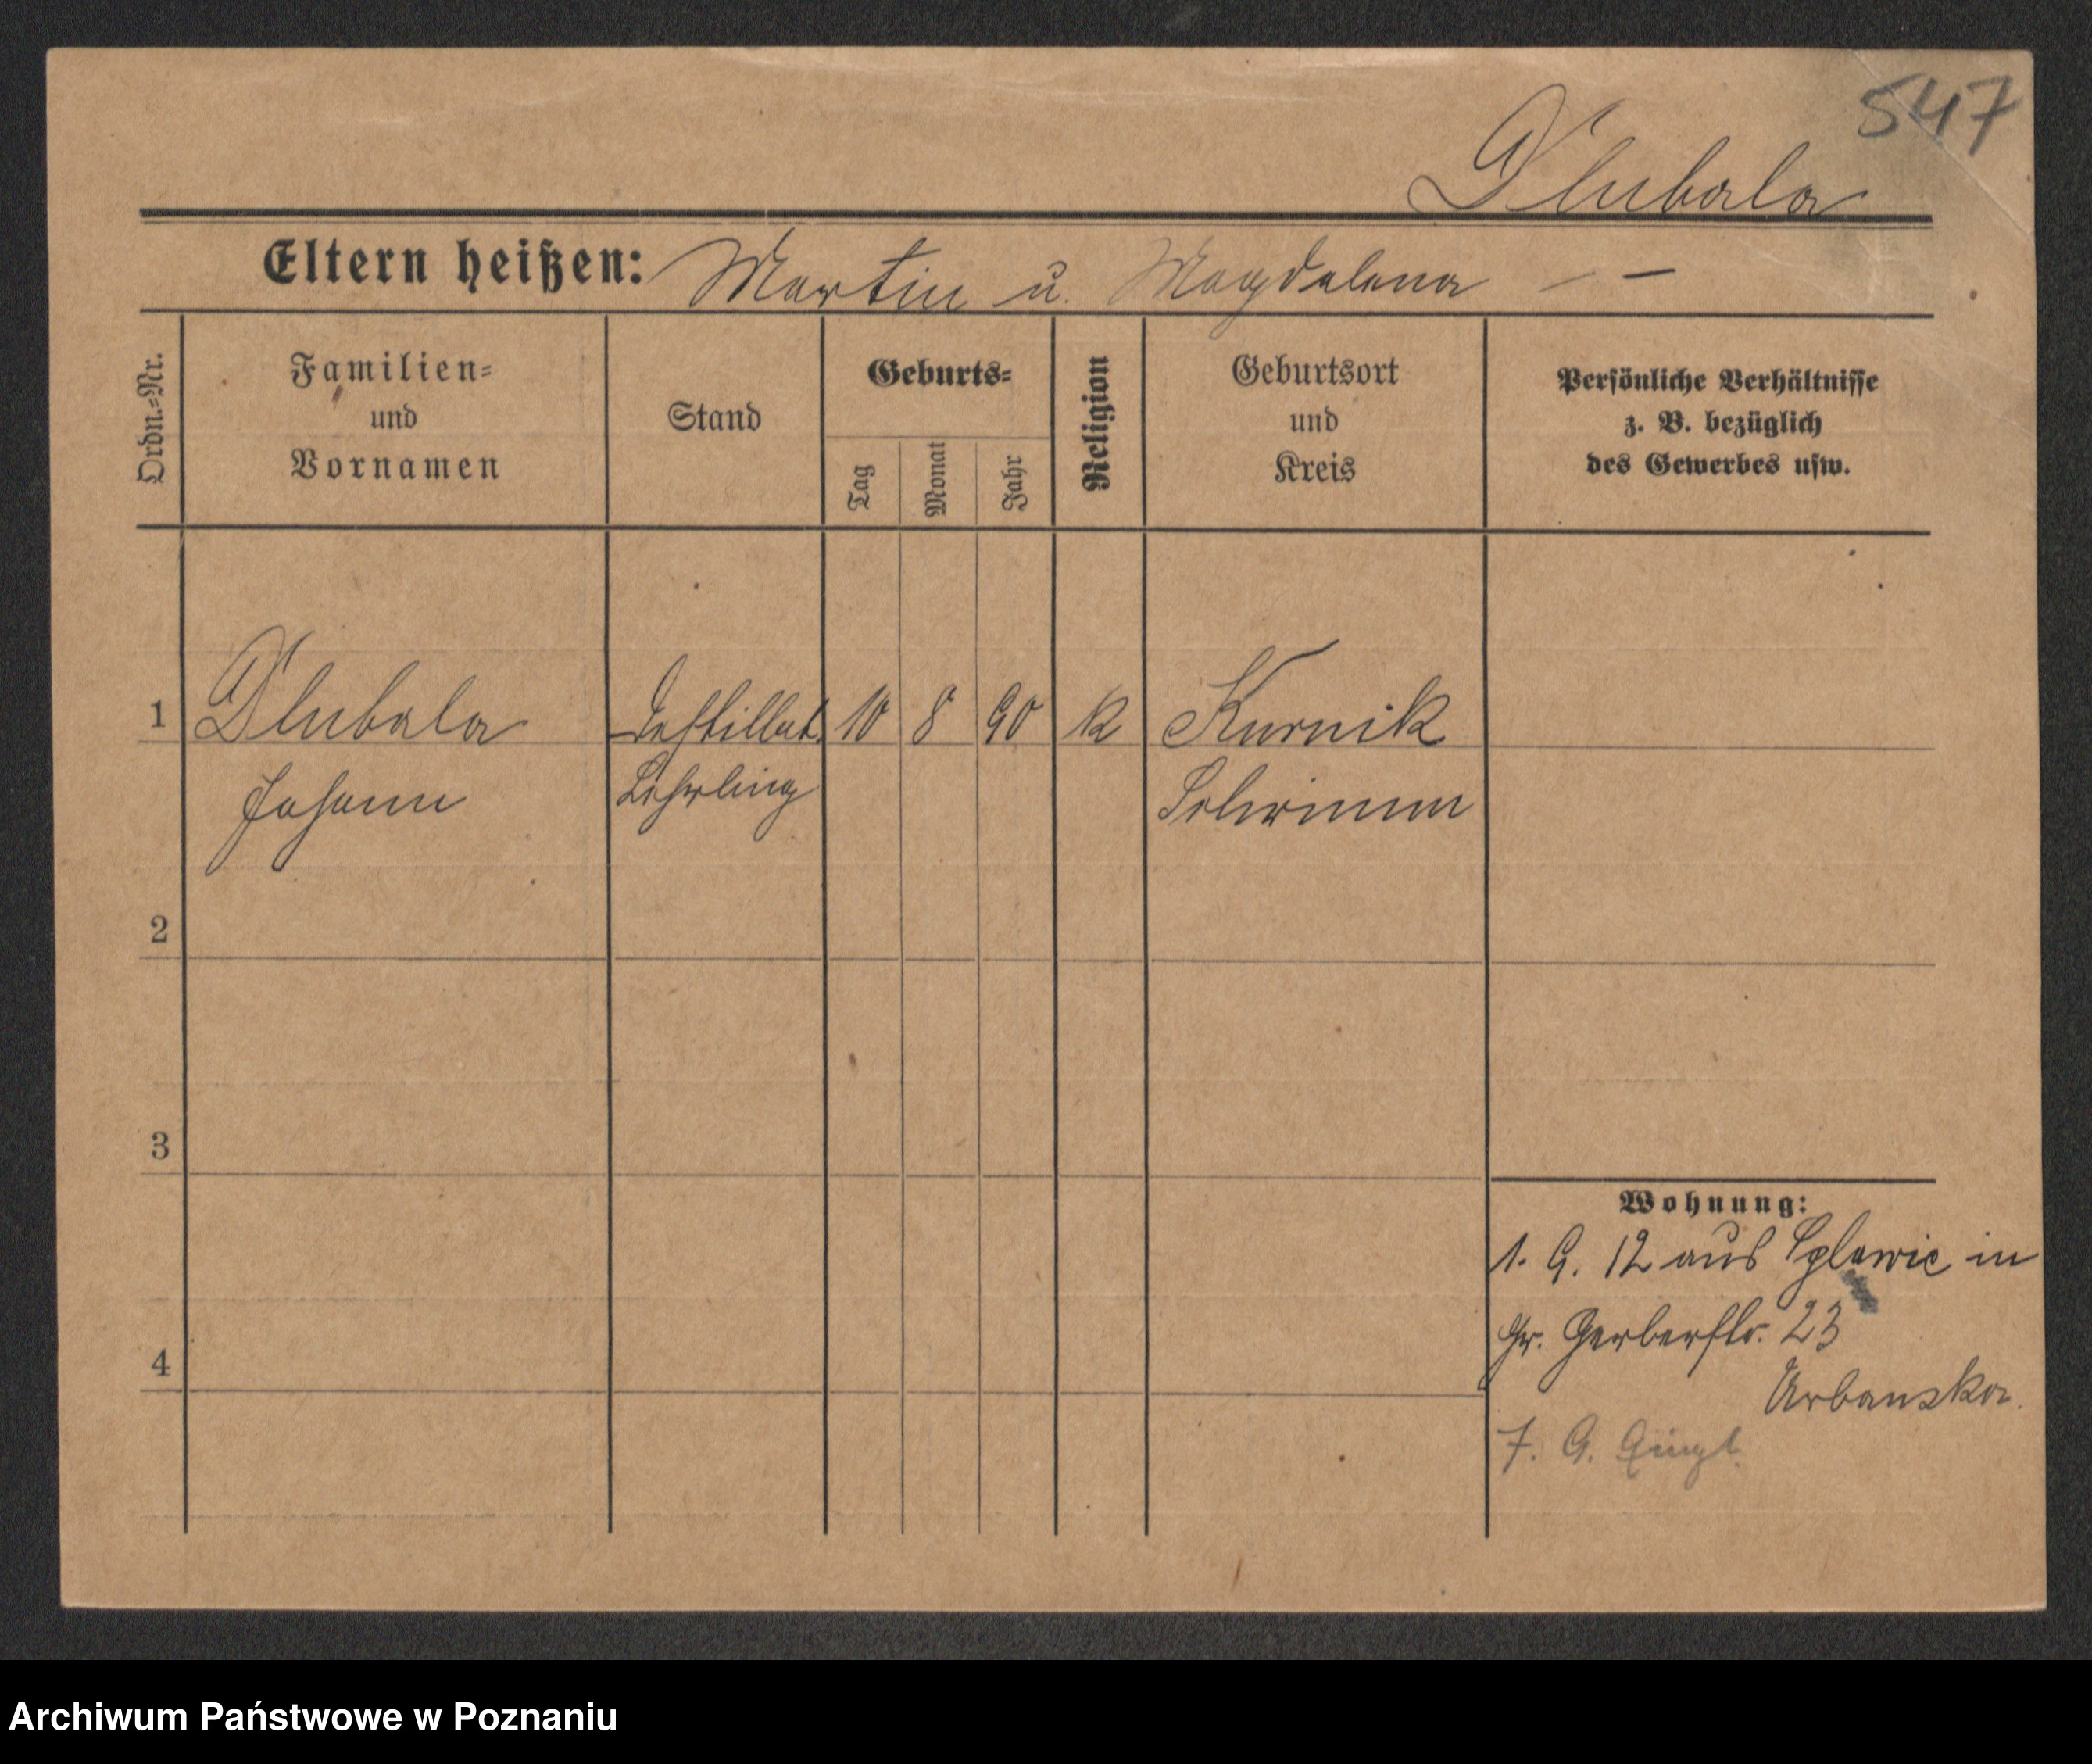 547
Dlubala
Eltern heißen: Martin u. Magdalena – –
Ordn.=Nr.
Familien=
und
Vornamen
Stand
Geburts=
Tag
Monat
Jahr
Religion
Geburtsort
und
Kreis
Persönliche Verhältnisse
z. B. bezüglich
des Gewerbes usw.
1 Dlubala Destillat. 10 8 90 K Kurnik
Johann Lehrling Schrimm
2
3
4
Wohnung:
1. 9. 12 aus in
Gr. Gerberstr. 23
Urbanska.
7. 9.
Archiwum Państwowe w Poznaniu